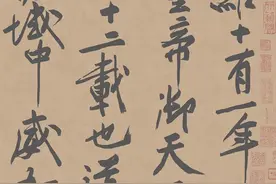 十有一年
帝御天
十二載也
域中威